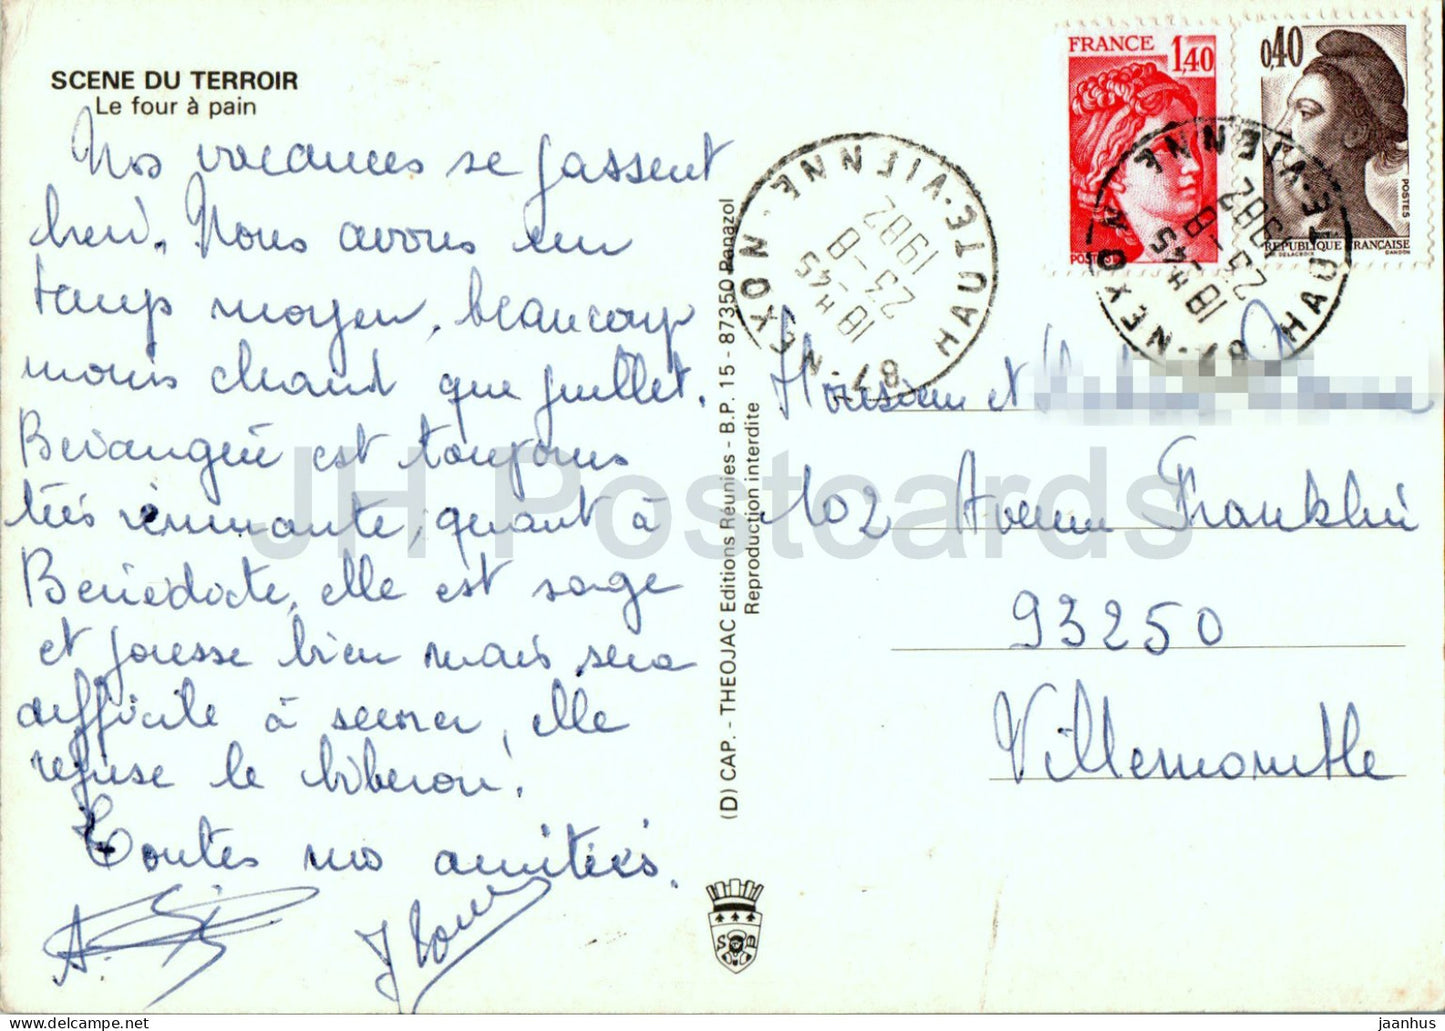 SCENE DU TERROIR
Le four à pain
Nos vacances se passent
bien. Nous avons un
temps moyen, beaucoup
moins chaud que juillet.
Bérangère est toujours
très remuante, quant à
Bénédicte, elle est sage
et pousse bien mais sera
difficile à sevrer, elle
refuse le biberon!
Toutes nos amitiés.
(D) CAP. - THEOJAC Editions Réunies - B.P. 15 - 87350 Panazol
Reproduction interdite
FRANCE
1,40
POSTES
0,40
POSTES
REPUBLIQUE FRANCAISE
DE DELACROIX
GANDON
87 - NEXON - HAUTE-VIENNE
18 H 45
23 - 8
1982
87 - NEXON - HAUTE-VIENNE
18 H 45
23 - 8
1982
Monsieur et
102 Avenue Franklin
93250
Villemomble
JH Postcards
www.delcampe.net
jaanhus